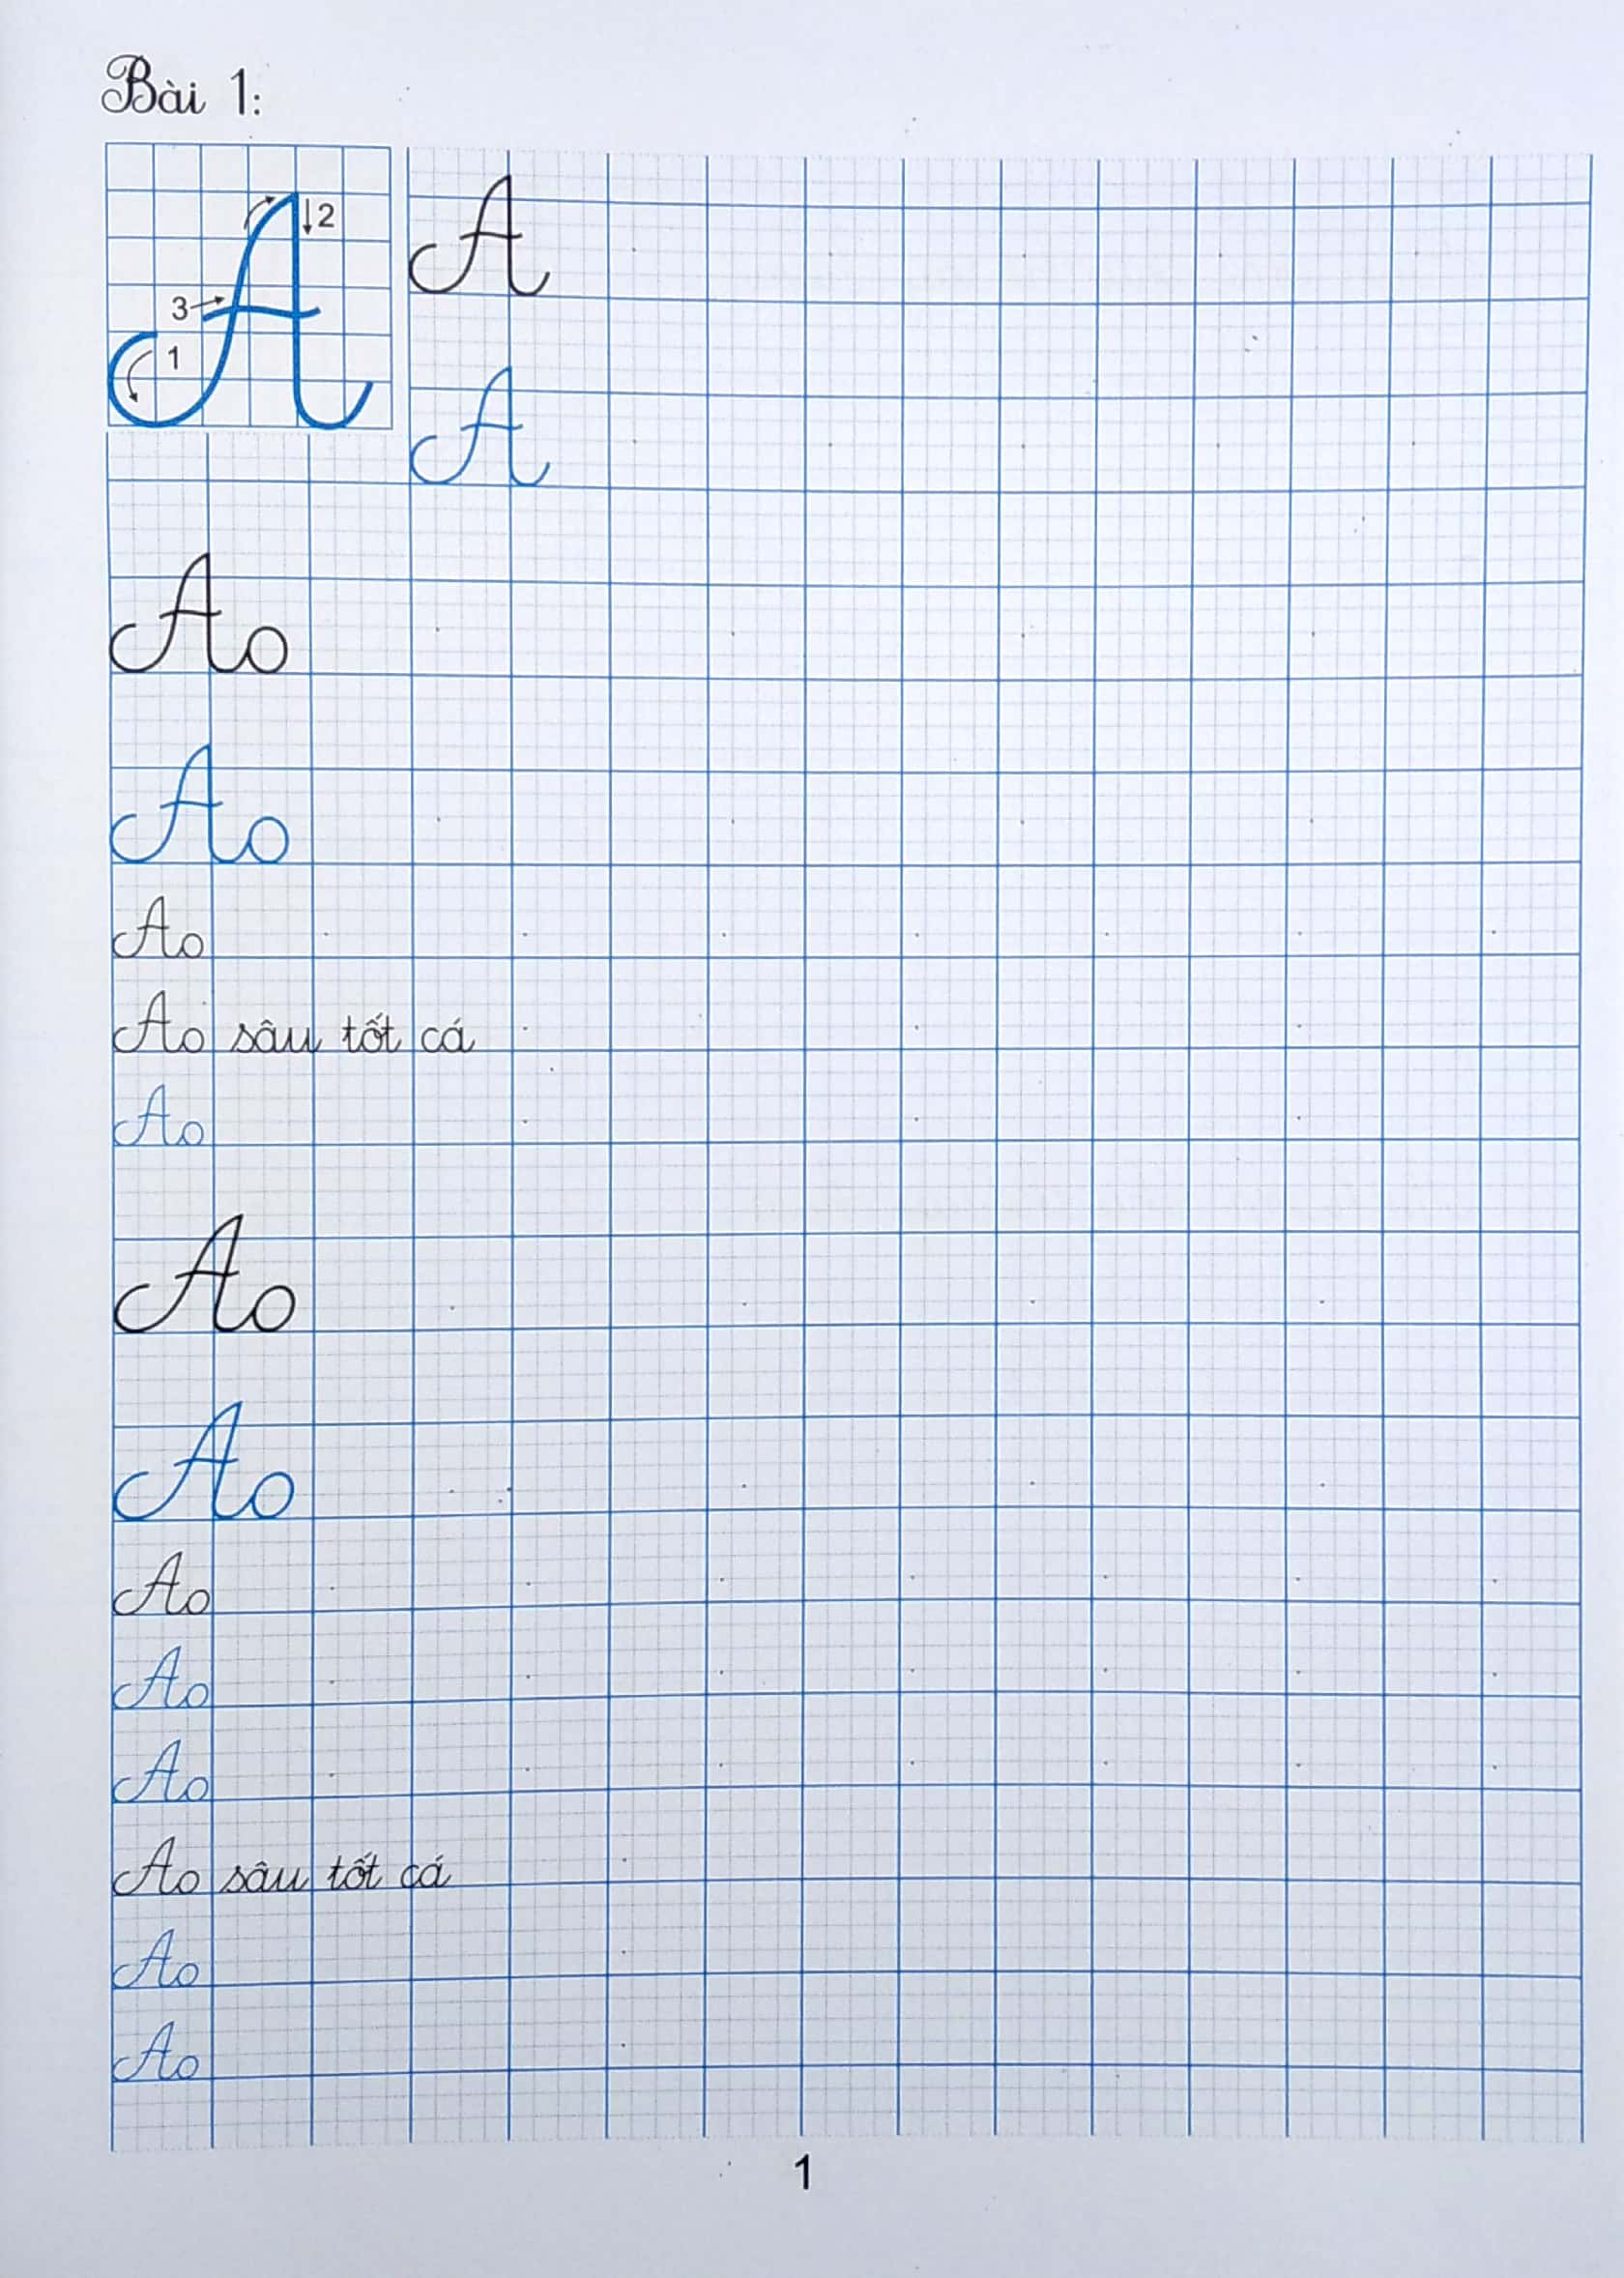 Bài 1:
2
3
1
A
A
A
Ao
Ao
Ao
Ao sâu tốt cá
Ao
Ao
Ao
Ao
Ao
Ao
Ao sâu tốt cá
Ao
Ao
1